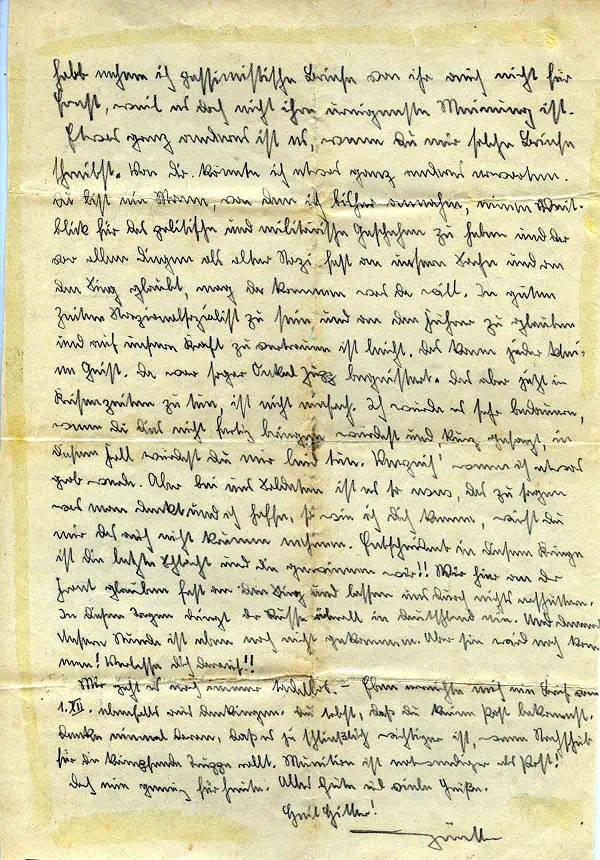 halb nehme ich pessimistische Briefe von ihr auch nicht für
Ernst, weil es doch nicht ihre ureigenste Meinung ist.
Etwas ganz anderes ist es, wenn Du mir solche Briefe
schreibst. Von Dir könnte ich etwas ganz anderes erwarten.
Du bist ein Mann, von dem ich bisher annahm, einen Weit-
blick für das politische und militärische Geschehen zu haben und der
vor allen Dingen als alter Nazi fest an unsere Sache und an
den Sieg glaubt, mag da kommen was da will. In guten
Zeiten Nationalsozialist zu sein und an den Führer zu glauben
und auf unsere Kraft zu vertrauen ist leicht, das kann jeder
Geist. Da war sogar Onkel Jupp begeistert. Das aber jetzt in
Krisenzeiten zu tun, ist nicht einfach. Ich würde es sehr bedauern,
wenn Du das nicht fertig bringen würdest und kurz gesagt, in
diesem Fall würdest Du mir leid tun. Verzeih' wenn ich etwas
grob werde. Aber bei uns Soldaten ist es so, das zu sagen
was man denkt und ich hoffe, so wie ich Dich kenne, wirst Du
mir das auch nicht krumm nehmen. Entscheidend in diesem Kriege
ist die letzte Schlacht und die gewinnen wir!! Wir hier an der
Front glauben fest an den Sieg und lassen uns durch nichts erschüttern.
In diesen Tagen dringt der Russe überall in Deutschland ein. Und dennoch
Unsere Stunde ist eben noch nicht gekommen. Aber sie wird noch kom-
men! Verlasse Dich darauf!!
Mir geht es noch immer tadellos. – Eben erreichte mich ein Brief vom
1.XII. ebenfalls aus. Du tobst, daß Du keine Post bekommst.
Denke einmal daran, daß es ja schließlich wichtiger ist, wenn Nachschub
für die kämpfende Truppe rollt. Munition ist notwendiger als Post!
Doch nun genug für heute. Alles Gute und viele Grüße.
Heil Hitler!
Günther